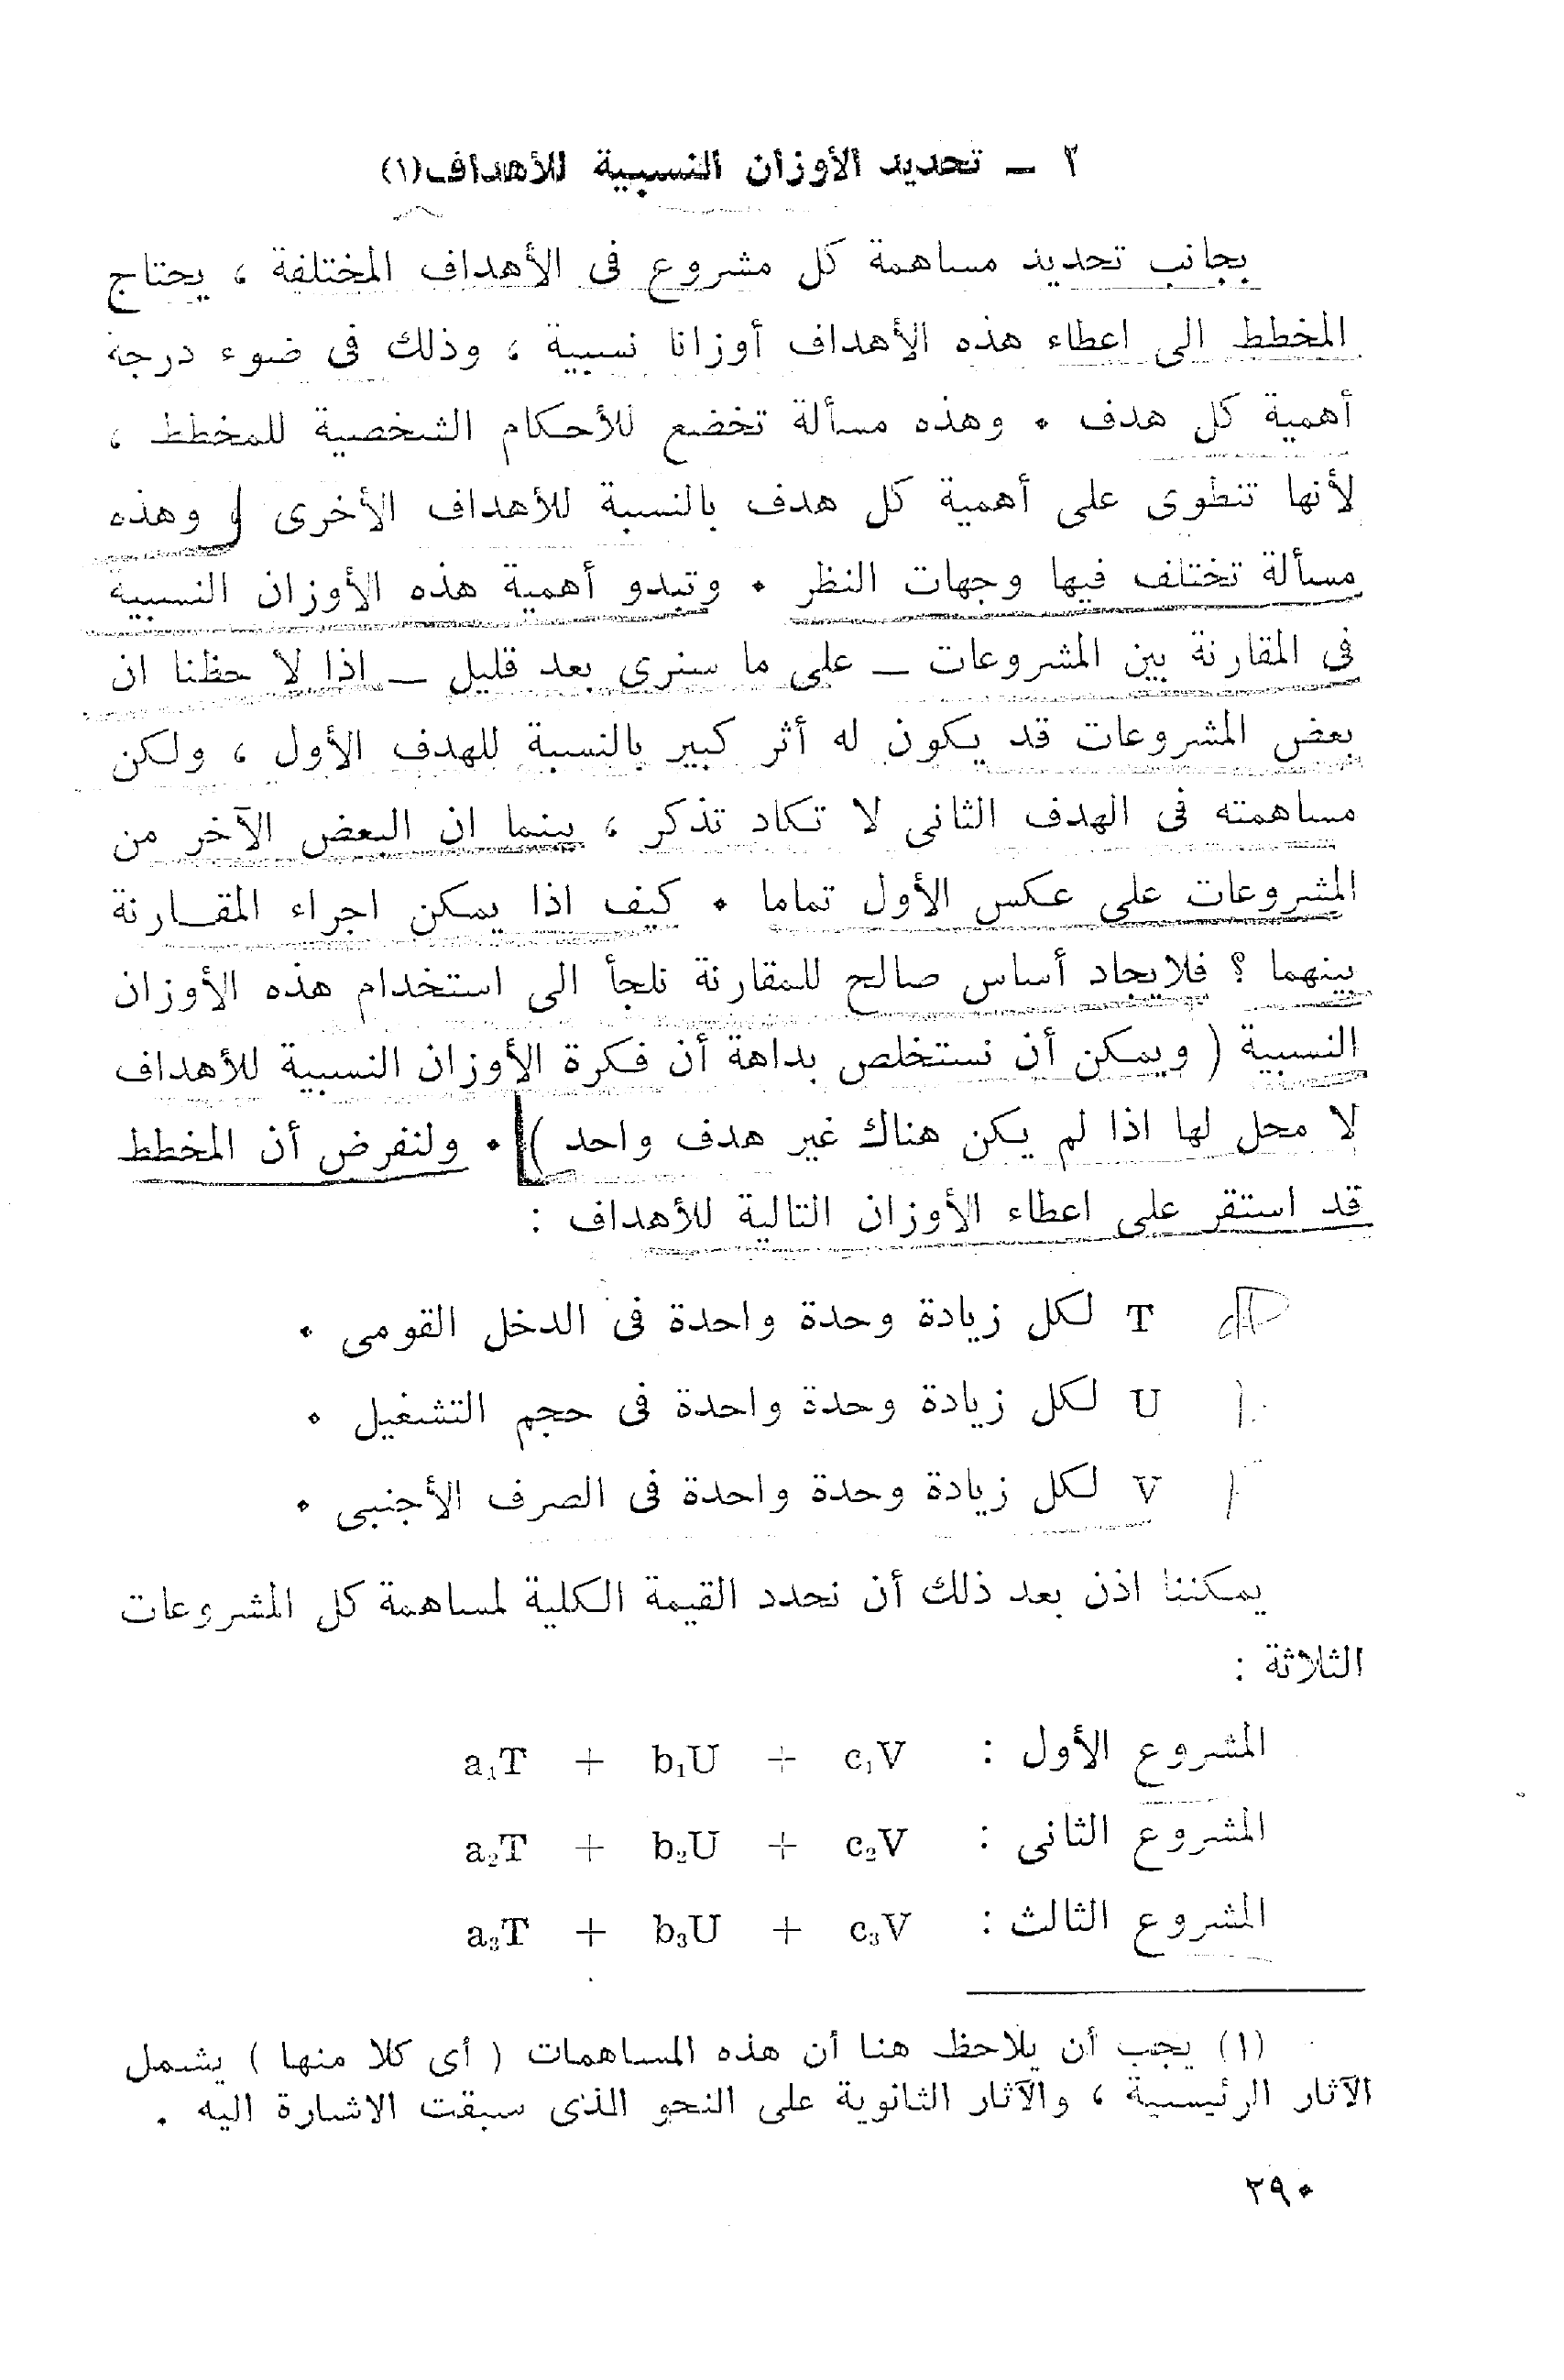 ٢ — تحديد الأوزان النسبية للأهداف(١)
بجانب تحديد مساهمة كل مشروع فى الأهداف المختلفة ، يحتاج
المخطط الى اعطاء هذه الأهداف أوزانا نسبية ، وذلك فى ضوء درجة
أهمية كل هدف ٠ وهذه مسألة تخضع للأحكام الشخصية للمخطط ،
لأنها تنطوى على أهمية كل هدف بالنسبة للأهداف الأخرى وهذه
مسألة تختلف فيها وجهات النظر ٠ وتبدو أهمية هذه الأوزان النسبية
فى المقارنة بين المشروعات — على ما سنرى بعد قليل — اذا لا حظنا ان
بعض المشروعات قد يكون له أثر كبير بالنسبة للهدف الأول ، ولكن
مساهمته فى الهدف الثانى لا تكاد تذكر ، بينما ان البعض الآخر من
المشروعات على عكس الأول تماما ٠ كيف اذا يمكن اجراء المقــارنة
بينهما ؟ فلايجاد أساس صالح للمقارنة نلجأ الى استخدام هذه الأوزان
النسبية ( ويمكن أن نستخلص بداهة أن فكرة الأوزان النسبية للأهداف
لا محل لها اذا لم يكن هناك غير هدف واحد ) ٠ ولنفرض أن المخطط
قد استقر على اعطاء الأوزان التالية للأهداف :
T لكل زيادة وحدة واحدة فى الدخل القومى ٠
U لكل زيادة وحدة واحدة فى حجم التشغيل ٠
V لكل زيادة وحدة واحدة فى الصرف الأجنبى ٠
يمكننا اذن بعد ذلك أن نحدد القيمة الكلية لمساهمة كل المشروعات
الثلاثة :
المشروع الأول : a₁T + b₁U + c₁V
المشروع الثانى : a₂T + b₂U + c₂V
المشروع الثالث : a₃T + b₃U + c₃V
(١) يجب أن يلاحظ هنا أن هذه المساهمات ( أى كلا منها ) يشمل
الآثار الرئيسية ، والآثار الثانوية على النحو الذى سبقت الاشارة اليه .
٢٩٠